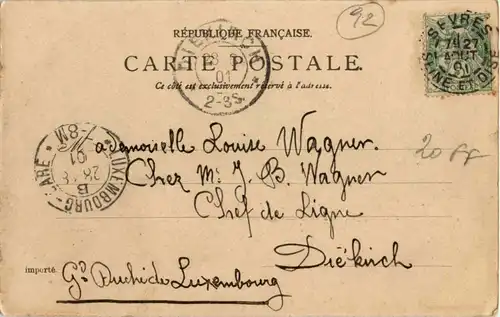 92
RÉPUBLIQUE FRANÇAISE.
CARTE POSTALE.
Ce côté est exclusivement réservé à l'adresse.
SÈVRES
27
AOUT
01
SEINE-ET-OISE
DIEKIRCH
01
2-3S.
LUXEMBOURG-GARE
01
B
Mademoiselle Louise Wagner.
Chez Mr J. B. Wagner
Chef de Ligne
Diekirch
importé.
Gd Duché de Luxembourg
20 FF